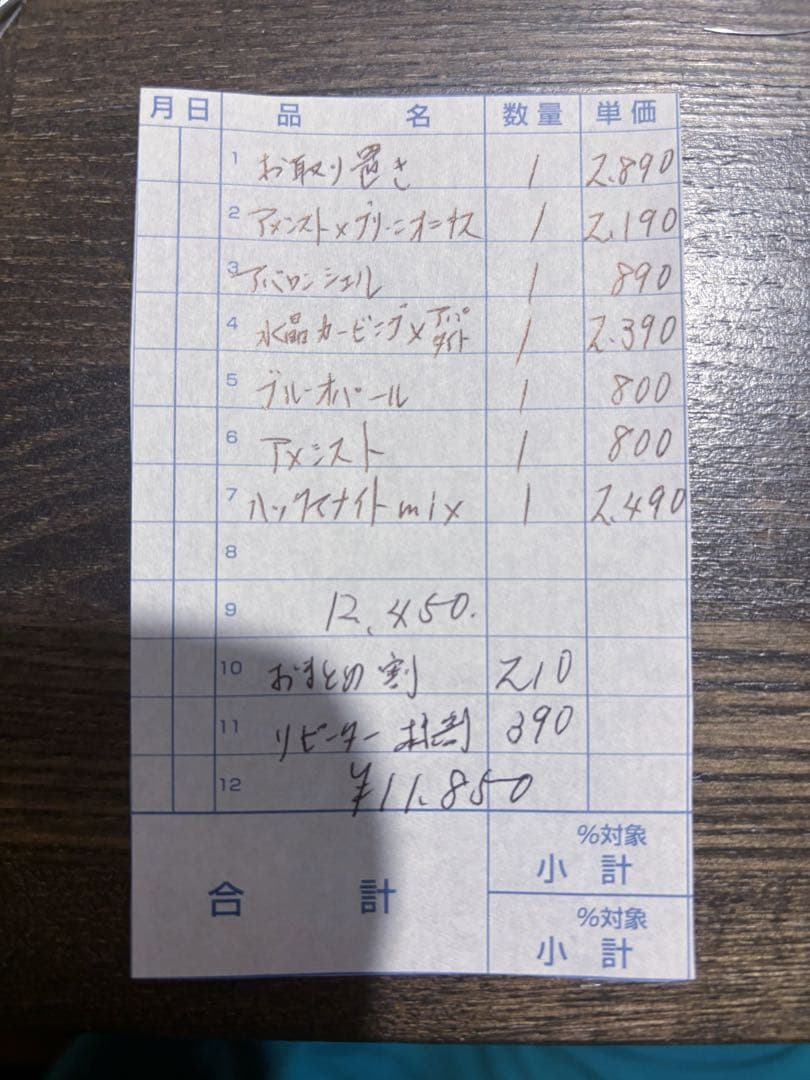 月 日 品 名 数量 単価
1 お取り置き 1 2.890
2 アメシスト×グリーンオニキス 1 2.190
3 アバロンシェル 1 890
4 水晶カービング×アパタイト 1 2.390
5 ブルーオパール 1 800
6 アメシスト 1 800
7 ハックマナイトmix 1 2.490
8
9 12,450.
10 おまとめ割 210
11 リピーター 390
12 ¥11.850
合 計
%対象
小 計
%対象
小 計